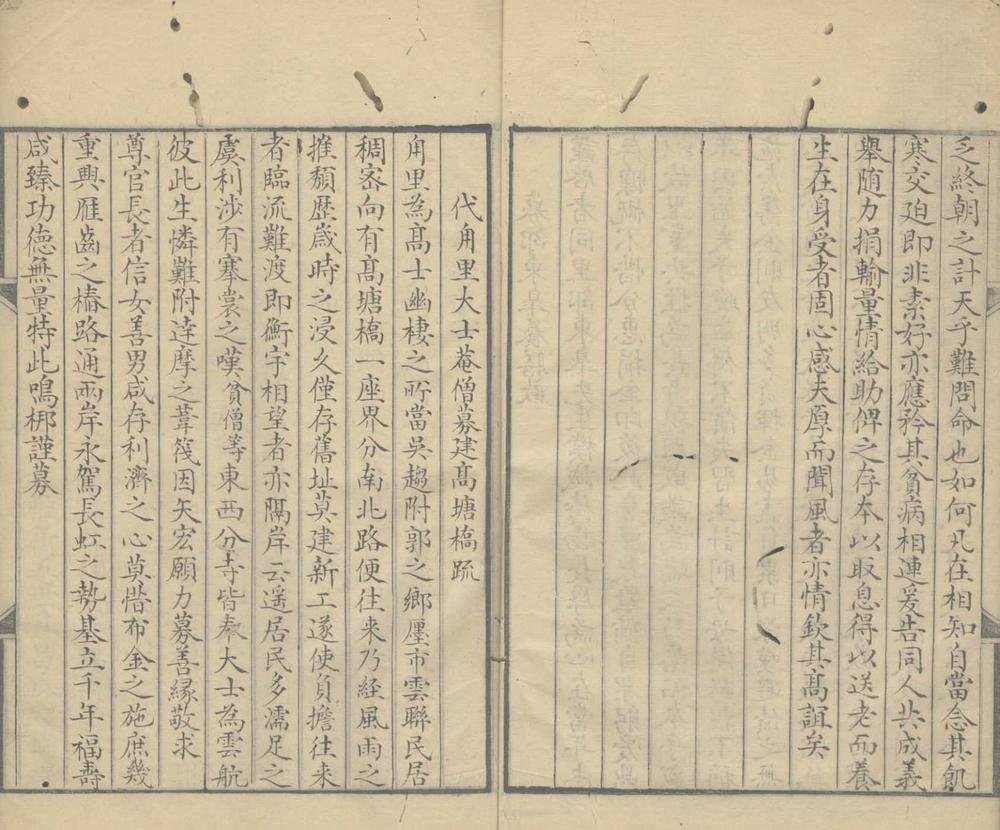 乏終朝之計天乎難問命也如何凡在相知自當念其飢
寒交迫即非素好亦應矜其貧病相連爰告同人共成義
舉随力捐輸量情給助俾之存本以取息得以送老而養
生在身受者固心感夫厚而聞風者亦情欽其高誼矣
代甪里大士菴僧募建髙塘橋疏
甪里為髙士幽棲之所當吳趨附郭之鄉廛市雲聯民居
稠宻向有髙塘橋一座界分南北路便往来乃経風雨之
摧頽歴歲時之浸久僅存舊址莫建新工遂使負擔往来
者臨流難渡即衡宇相望者亦隔岸云遥居民多濡足之
虞利涉有褰裳之嘆貧僧等東西分寺皆奉大士為雲航
彼此生憐難附達摩之葦筏因矢宏願力募善緣敬求
尊官長者信女善男咸存利濟之心莫惜布金之施庶幾
重興雁齒之樁路通兩岸永駕長虹之勢基立千年福壽
咸臻功徳無量特此鳴梆謹募